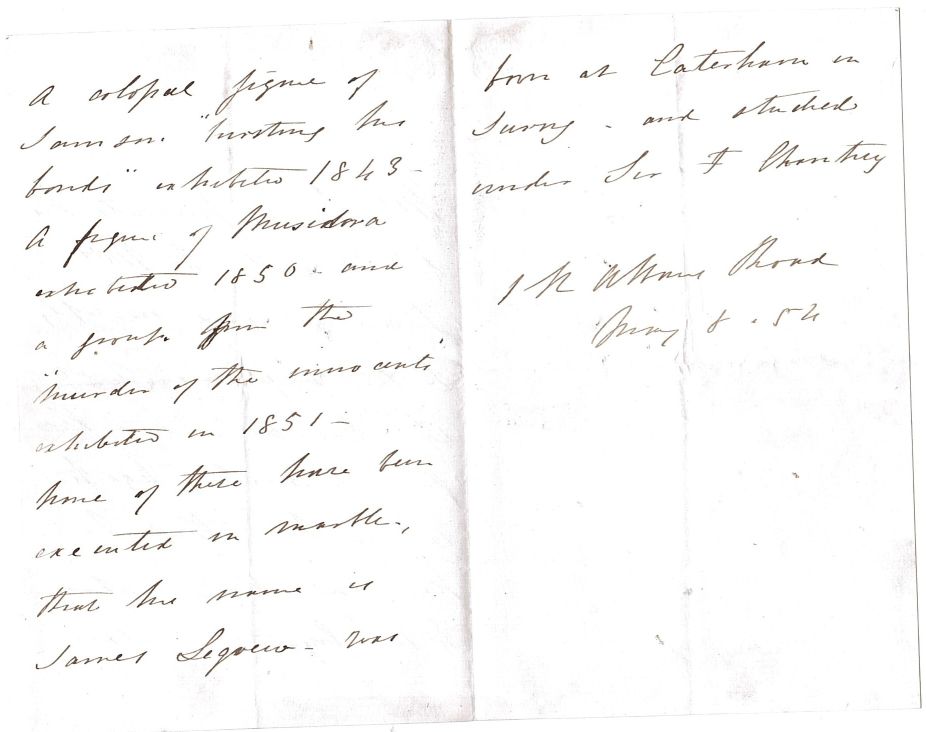 A colossal figure of
Samson "bursting his
bonds" exhibited 1843 -
A figure of Musidora
exhibited 1850 - and
a group from the
"murder of the innocents"
exhibited in 1851 -
None of these have been
executed in marble -,
that his name is
James Legrew - was
born at Caterham in
Surrey - and studied
under Sir F Chantrey
1 St Albans Road
May 8 . 54